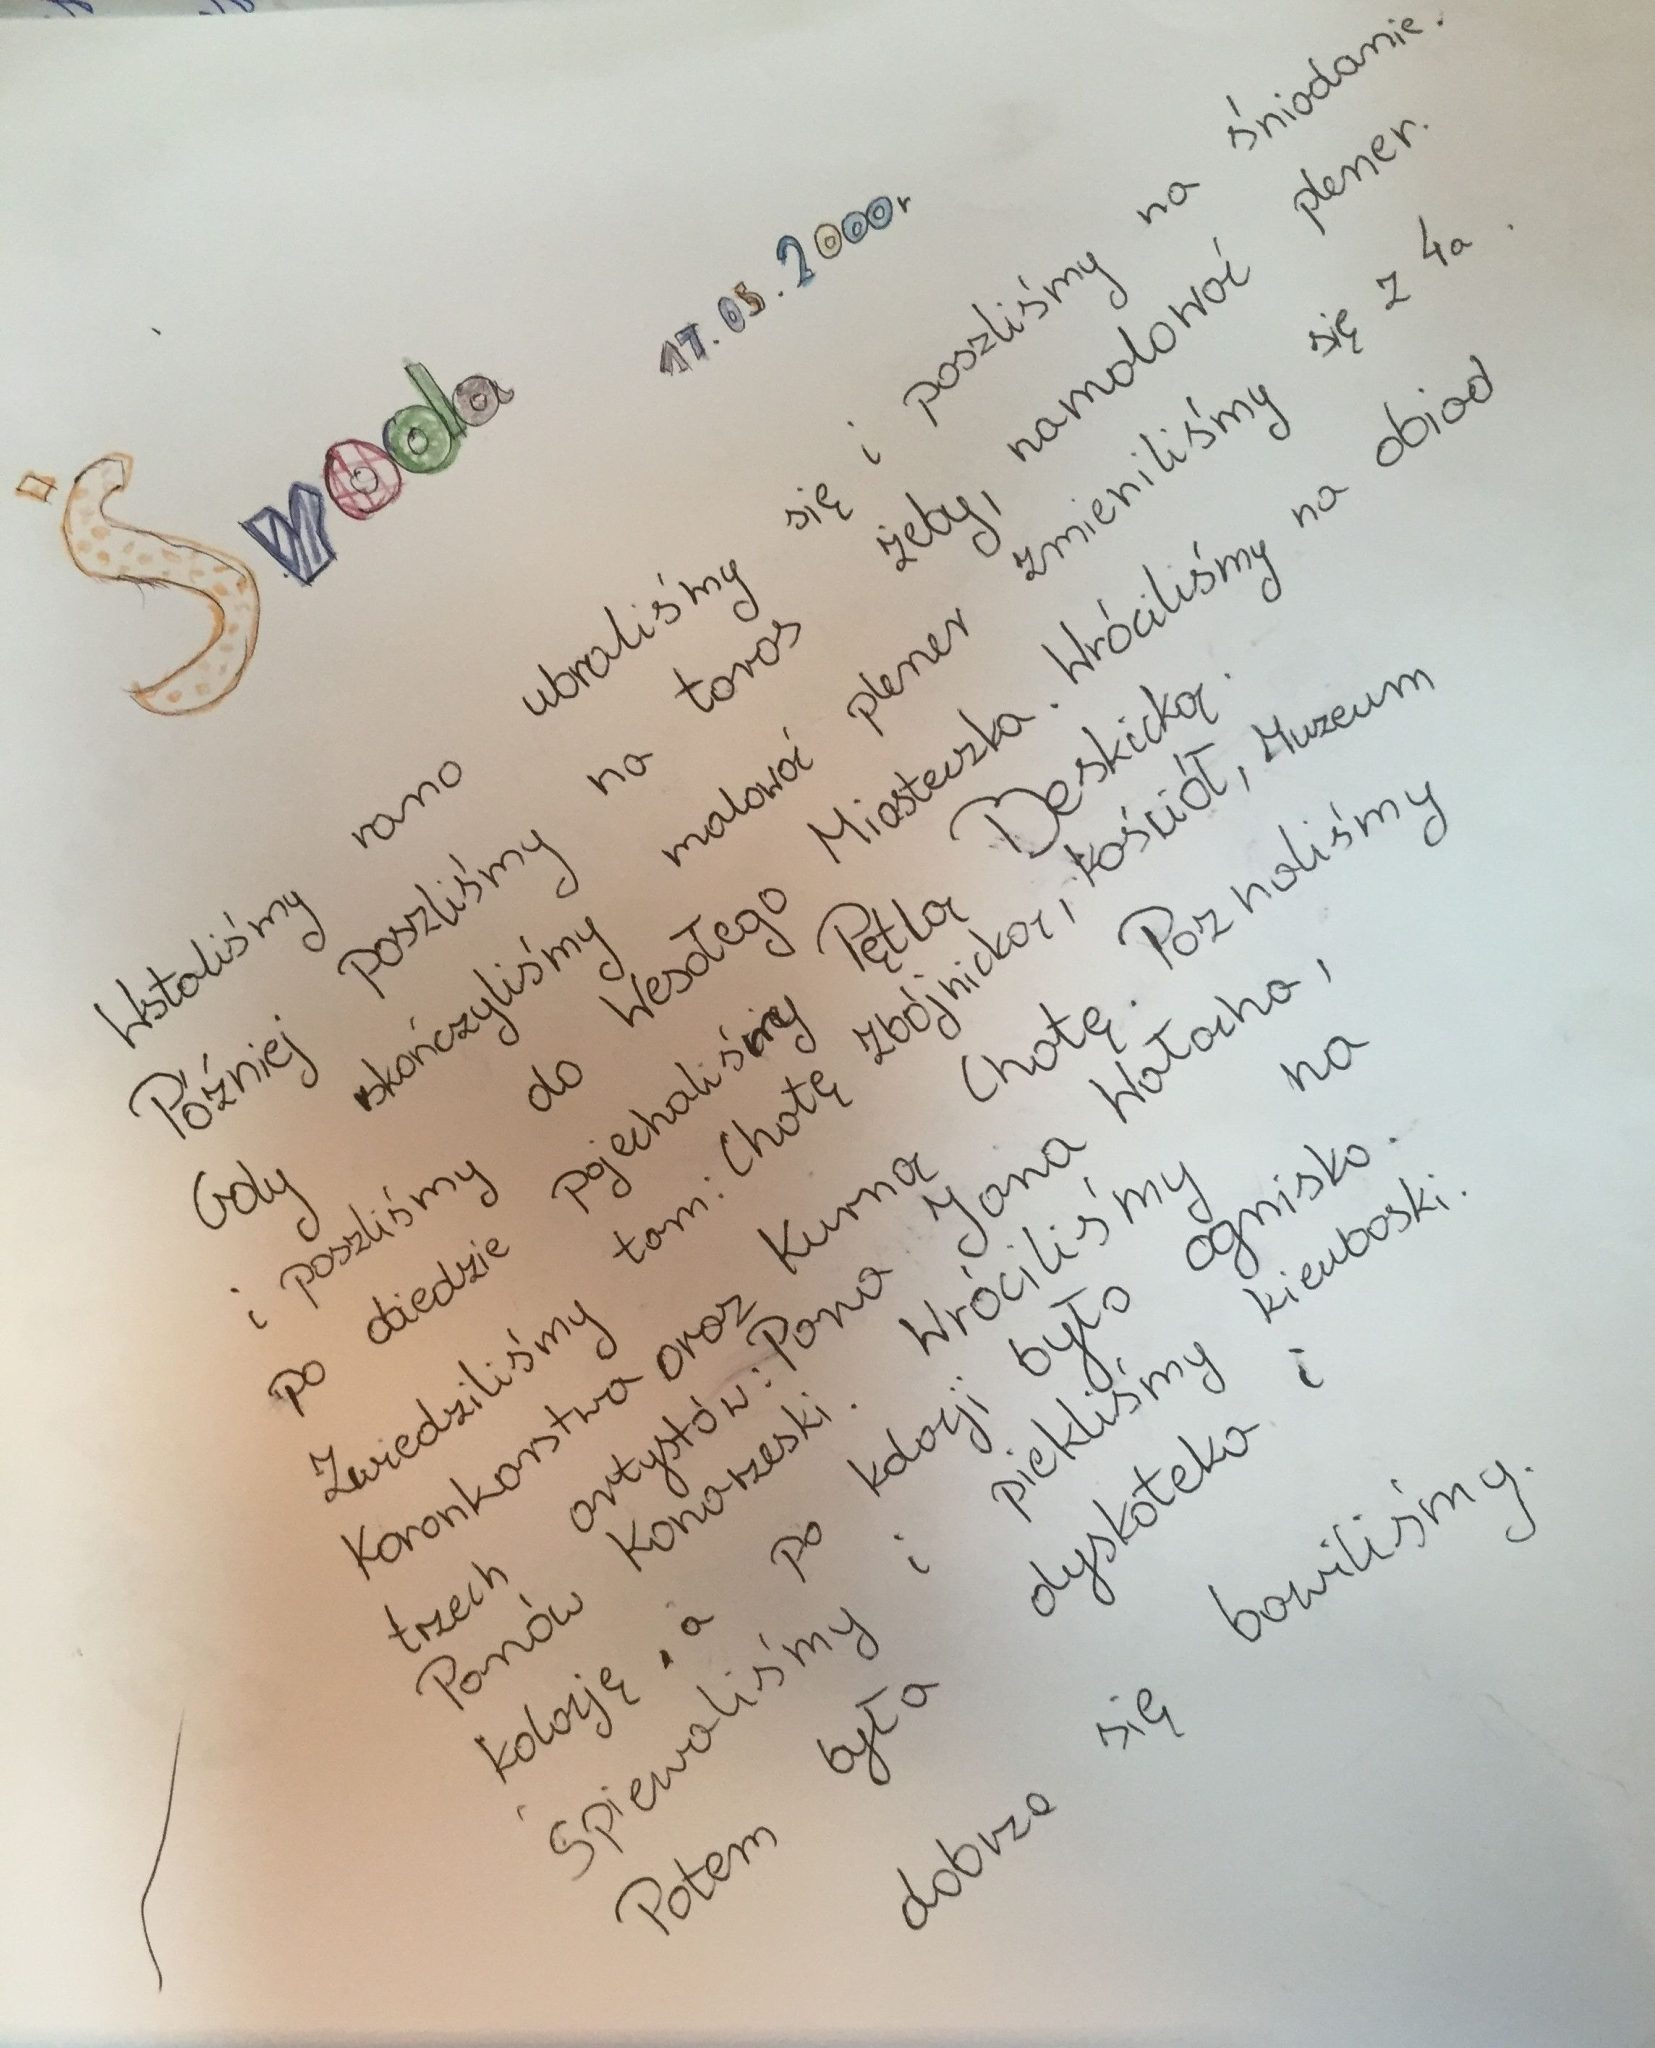 Środa 17.05.2000r
Wstaliśmy rano ubraliśmy się i poszliśmy na śniadanie.
Później poszliśmy na taras żeby, namalować plener.
Gdy skończyliśmy malować plener zmieniliśmy się z 4a.
i poszliśmy do Wesołego Miasteczka. Wróciliśmy na obiad
Po obiedzie pojechaliśmy Pętlą Beskicką.
Zwiedziliśmy tam: Chatę zbójnicką, kościół, Muzeum
Koronkarstwa oraz Kurną Chatę. Poznaliśmy
trzech artystów: Pana Jana Wałacha,
Panów Konarzeski. Wróciliśmy na
kolację, a po kolacji było ognisko.
Śpiewaliśmy i piekliśmy kieuboski.
Potem była dyskoteka i
dobrze się bawiliśmy.